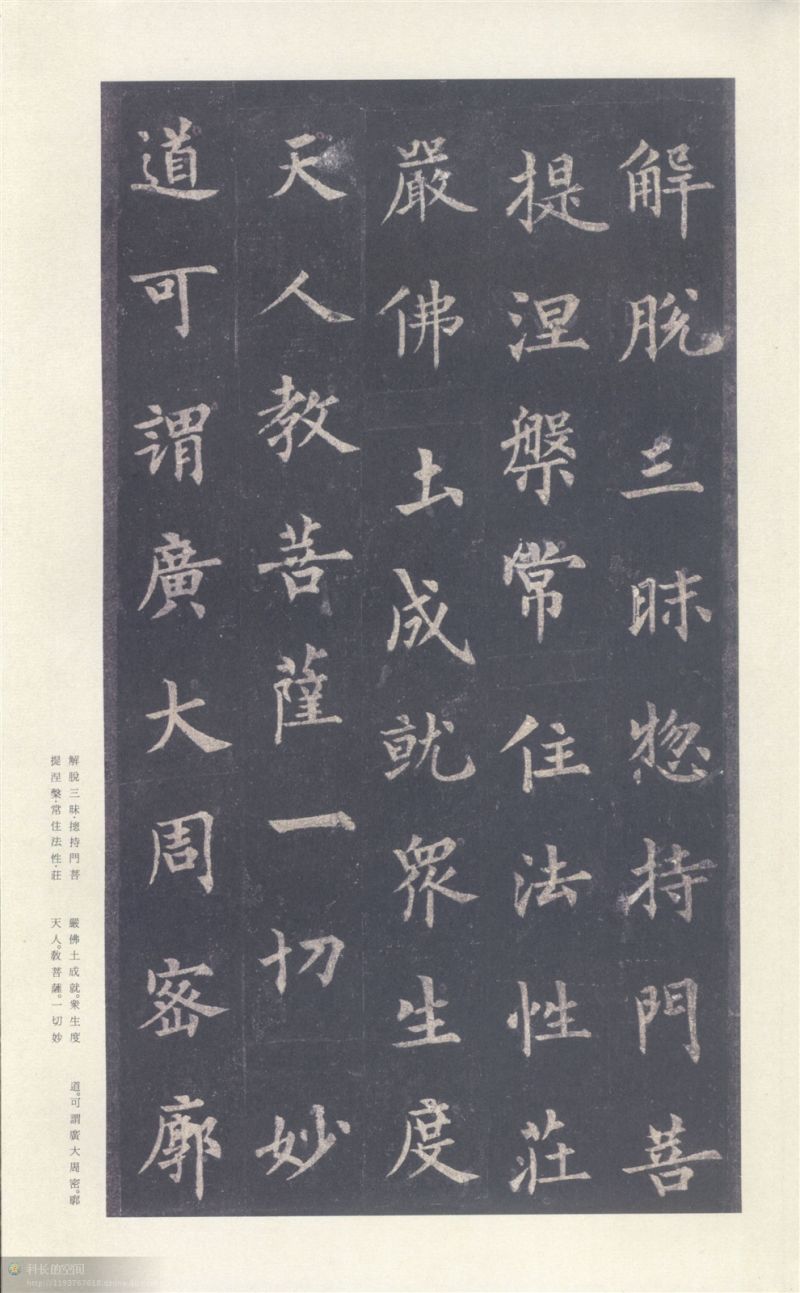 解脫三昧惣持門菩
提涅槃常住法性莊
嚴佛土成就衆生度
天人教菩薩一切妙
道可謂廣大周密廓
解脫三昧·揔持門菩
提涅槃·常住法性·莊
嚴佛土成就。衆生度
天人。教菩薩。一切妙
道。可謂廣大周密。廓
科长的空间